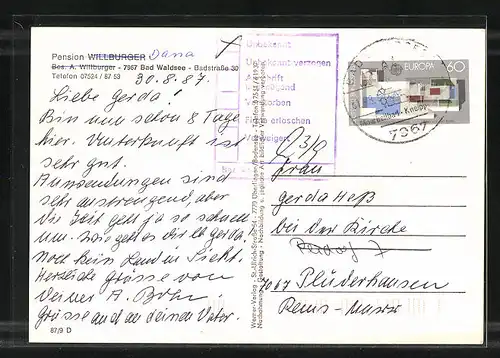 Pension WILLBURGER Dana
Bes. A. Willburger - 7967 Bad Waldsee - Badstraße 30
Telefon 07524 / 87 53
30.8.87.
Liebe Gerda!
Bin nun schon 8 Tage
hier. Unterkunft ist
sehr gut.
Anwendungen sind
sehr anstrengend, aber
die Zeit geht ja so schnell
um. Wie geht es dir lb Gerda.
Noch kein Land in Sicht.
Herzliche Grüsse von
Deiner A. Böhr
Grüsse auch an deinen Vater.
87/9 D
Unbekannt
Unbekannt verzogen
Anschrift
Verstorben
Firma erloschen
Verweigert
EUROPA 60
7967
Frau
Gerda Heß
bei der Kirche
7067 Plüderhausen
Rems-Murr